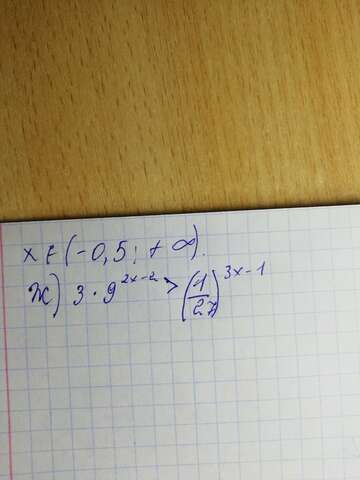 x ∈ (-0,5; +∞).
Ж) 3 · 9^{2x-2} > (1/27)^{3x-1}